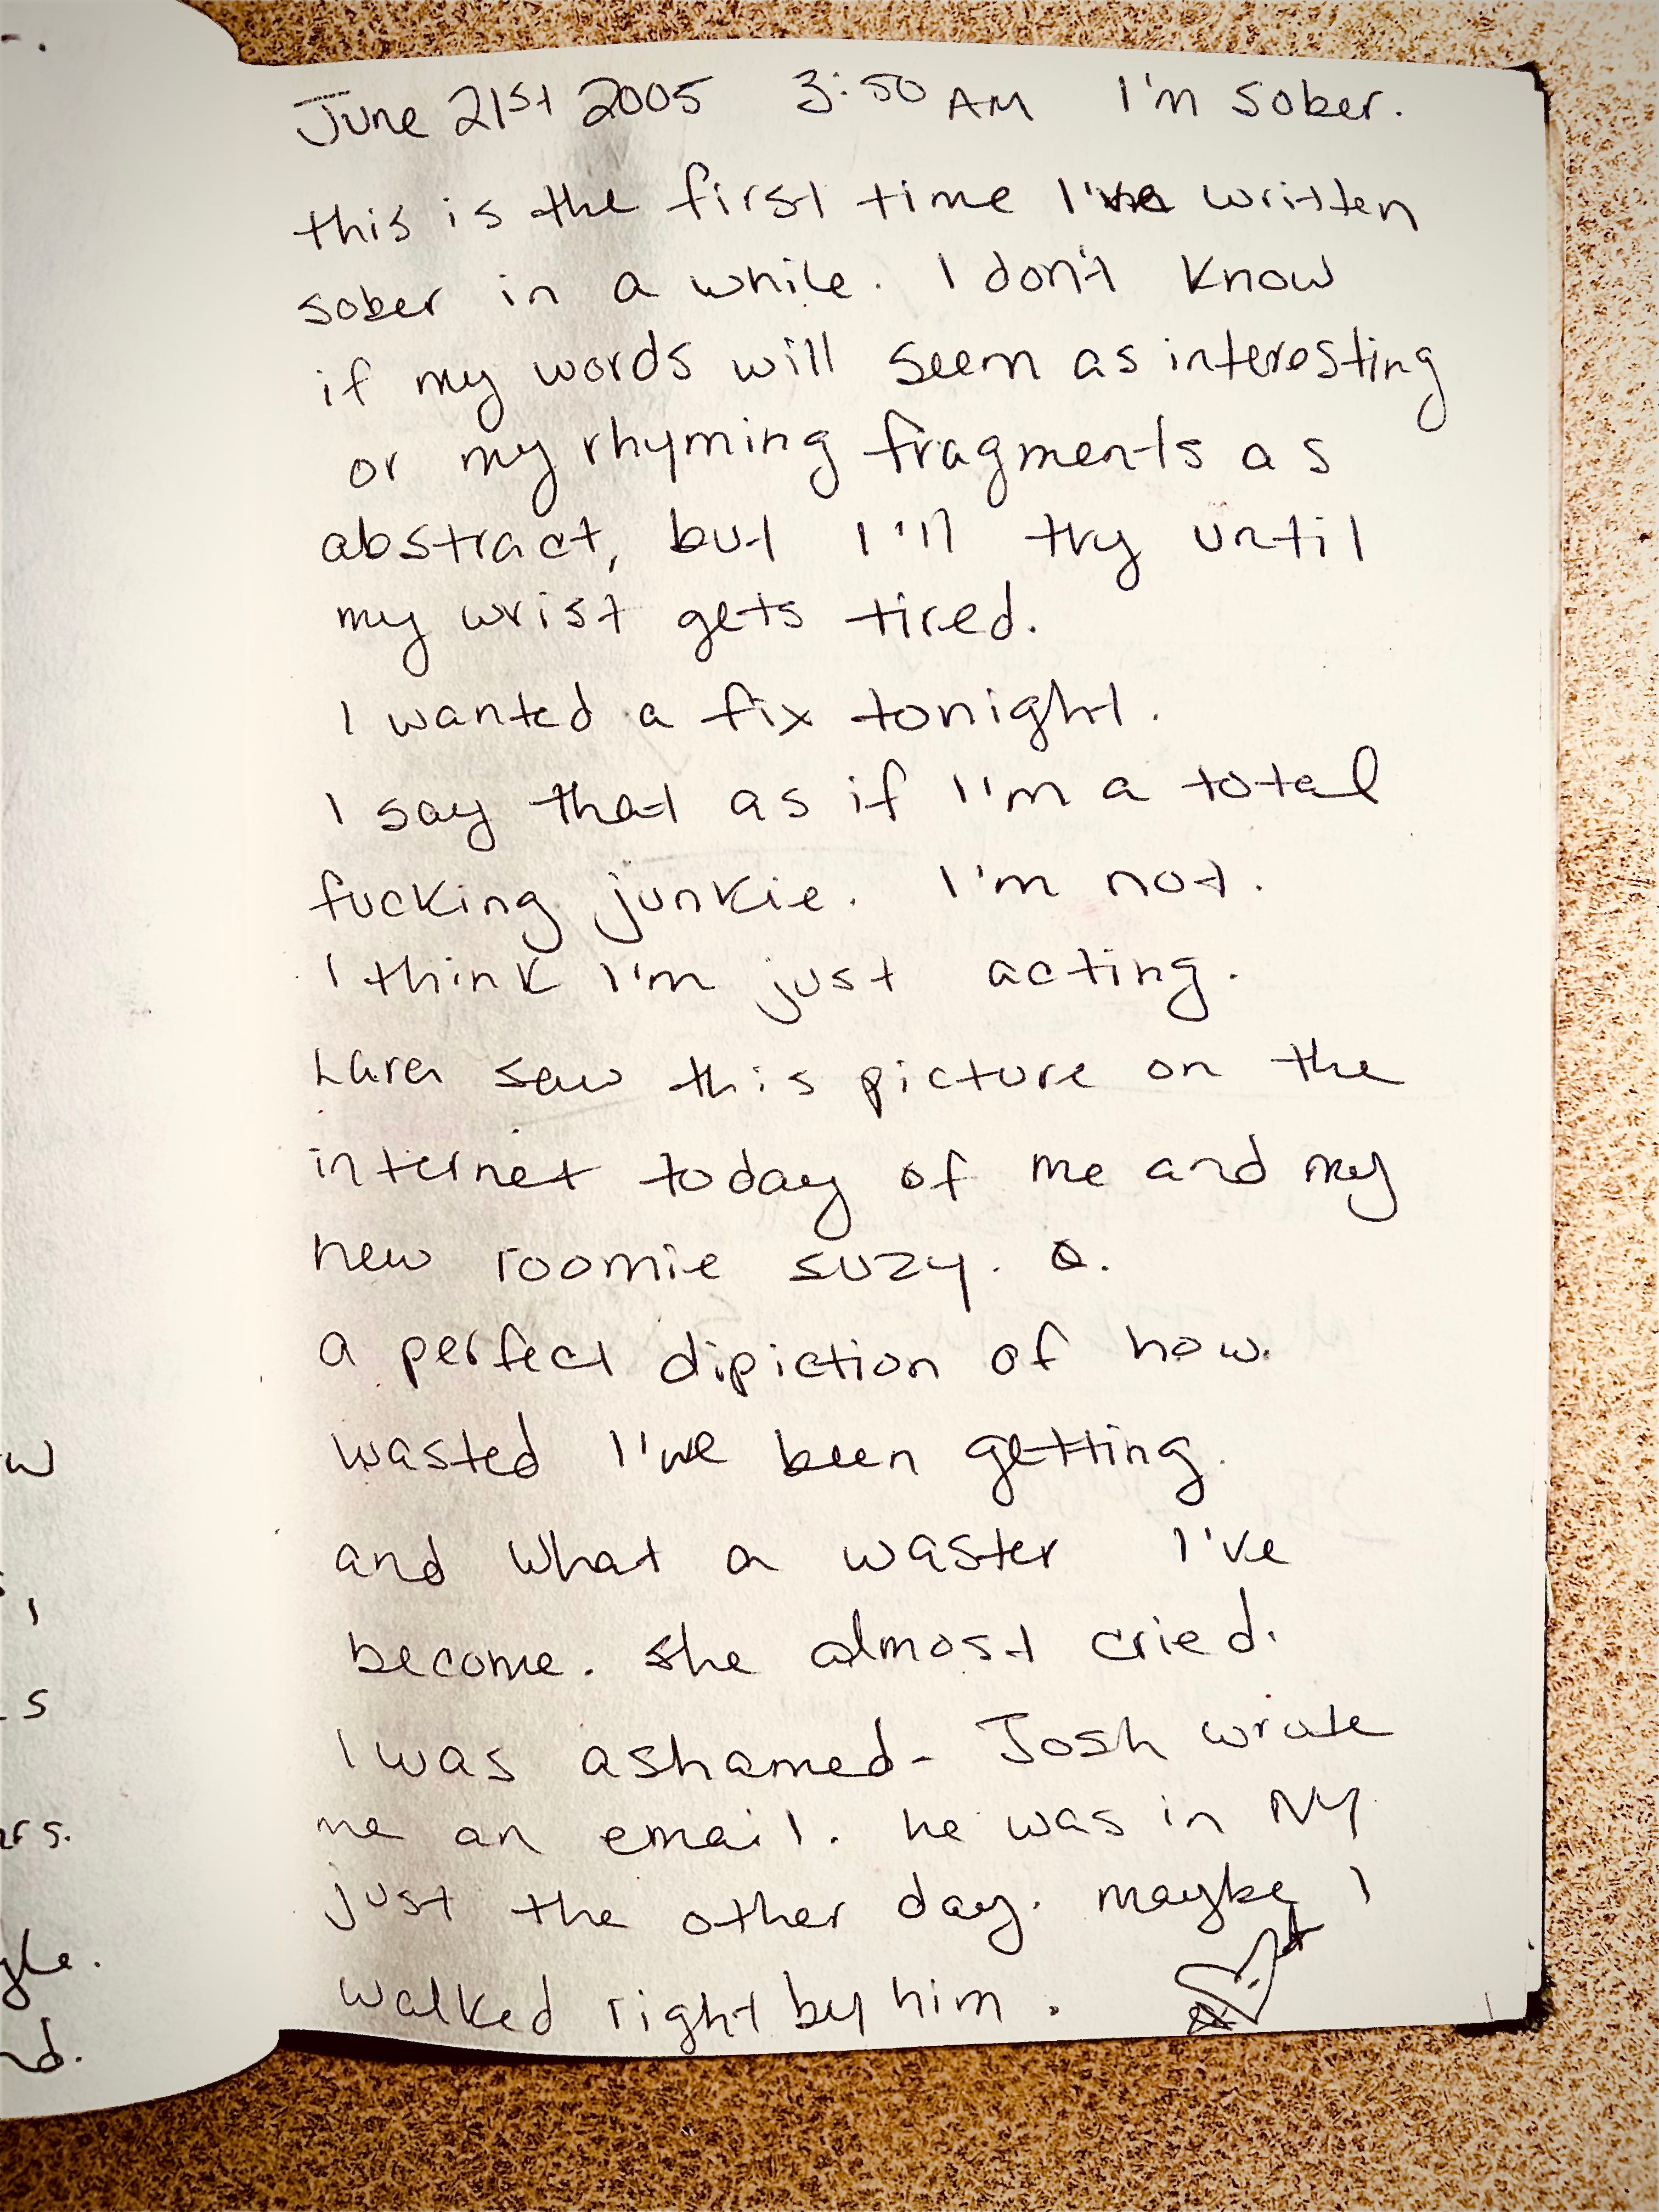 June 21st 2005 3:50 AM I'm sober.
this is the first time I've written
sober in a while. I don't know
if my words will seem as interesting
or my rhyming fragments as
abstract, but I'll try until
my wrist gets tired.
I wanted a fix tonight.
I say that as if I'm a total
fucking junkie. I'm not.
I think I'm just acting.
Lara saw this picture on the
internet today of me and my
new roomie suzy. Q.
a perfect dipiction of how
wasted I've been getting.
and what a waster I've
become. she almost cried.
I was ashamed - Josh wrote
me an email. he was in NY
just the other day. maybe I
walked right by him.
w
s
rs.
gle.
nd.